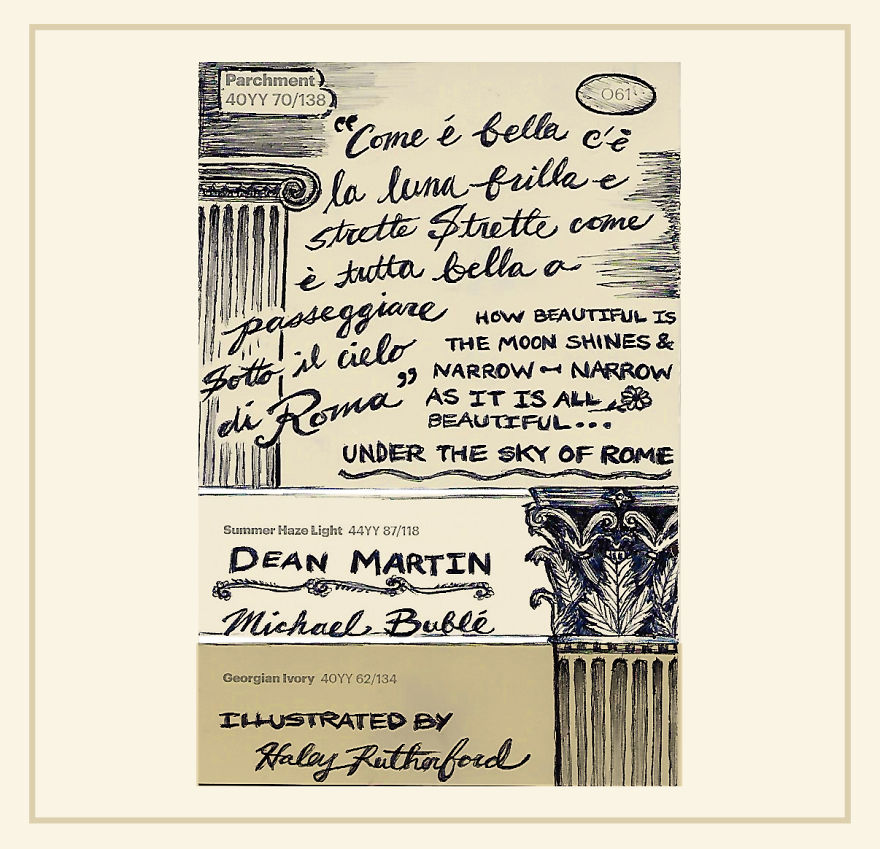 Parchment
40YY 70/138
061
"Come é bella c'è
la luna brilla e
strette Strette come
è tutta bella a
passeggiare
Sotto il cielo
di Roma"
HOW BEAUTIFUL IS
THE MOON SHINES &
NARROW ~ NARROW
AS IT IS ALL
BEAUTIFUL...
UNDER THE SKY OF ROME
Summer Haze Light 44YY 87/118
DEAN MARTIN
Michael Bublé
Georgian Ivory 40YY 62/134
ILLUSTRATED BY
Haley Rutherford